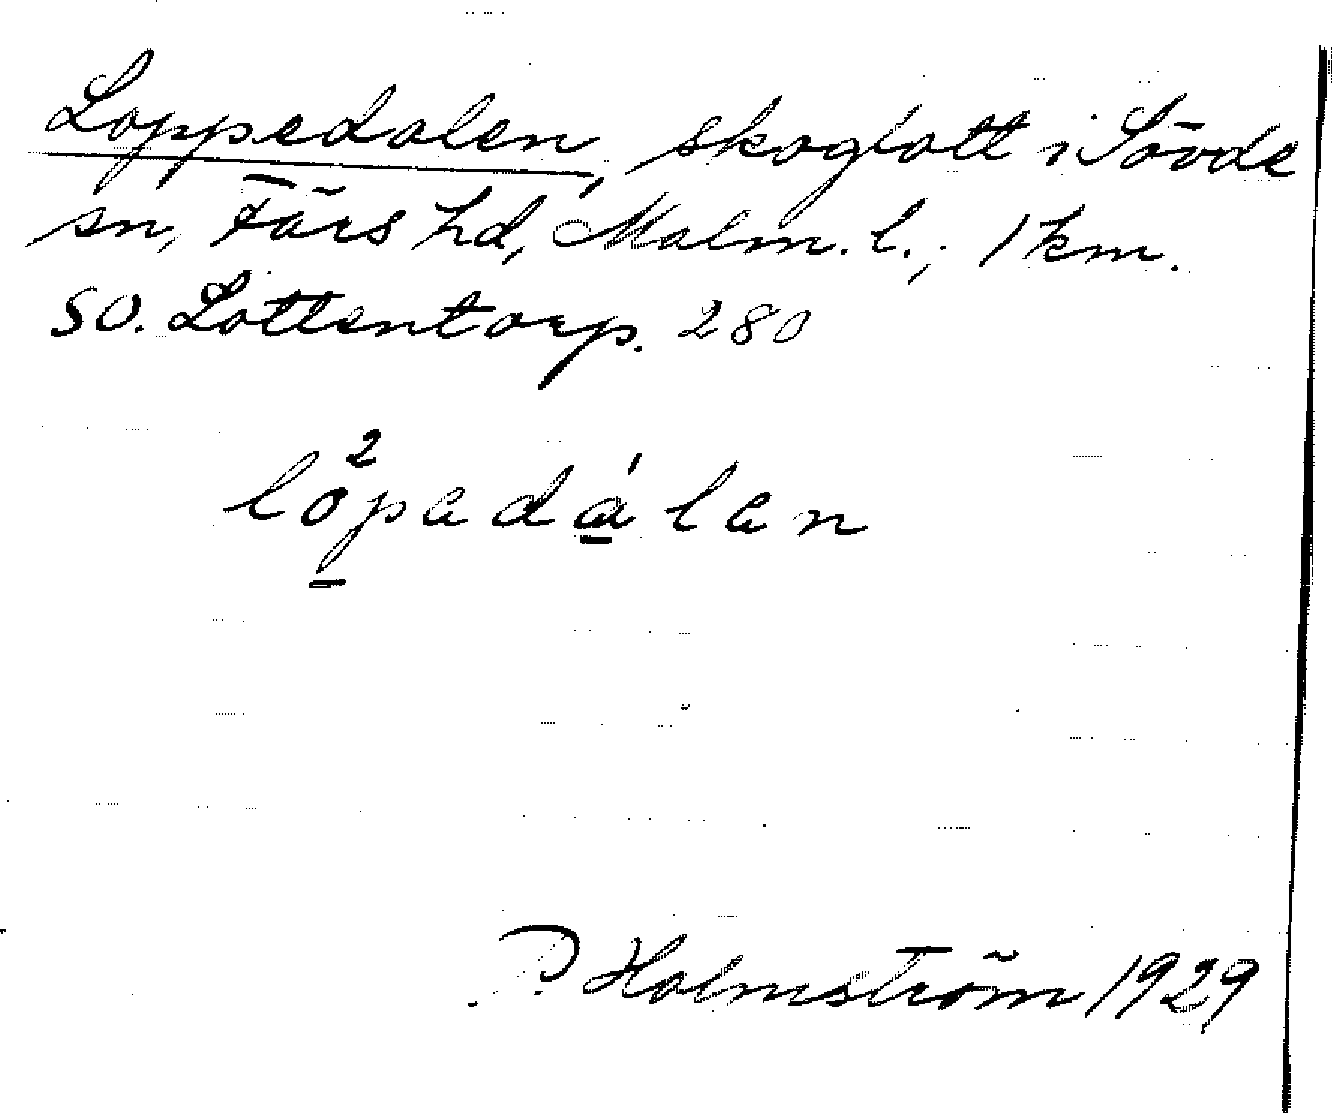 Loppedalen, skoglott i Sövde
sn, Färs hd, Malm. l.; 1 km.
SO. Lottentorp. 280
lo²pedálen
P. Holmström 1929